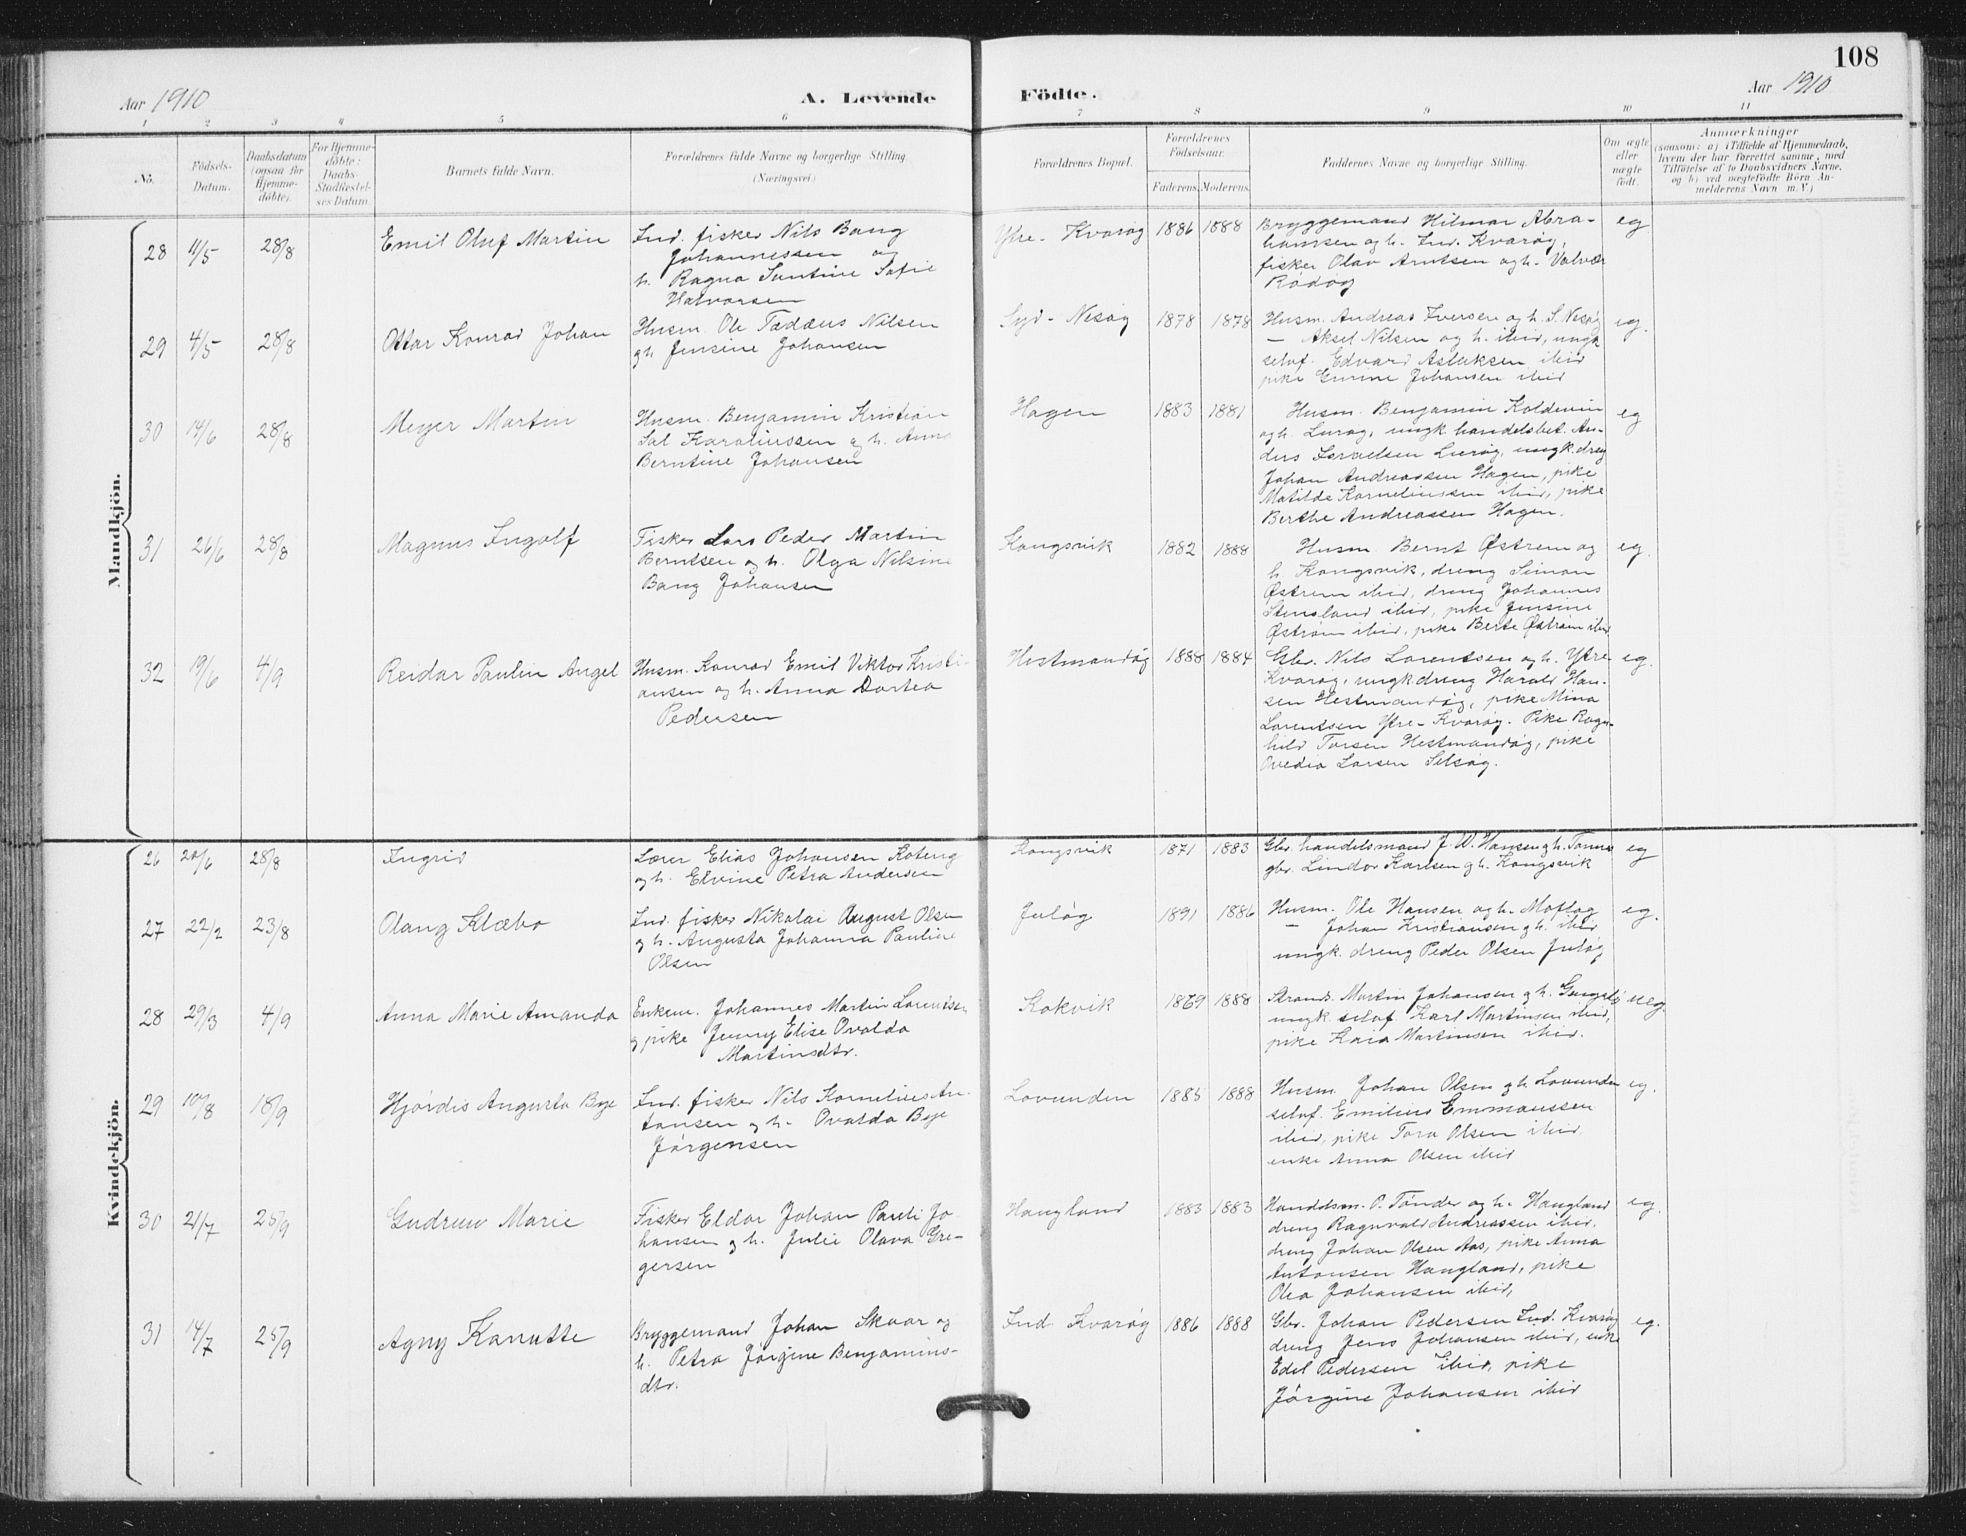 108
Aar 1910
A. Levende
Födte.
Aar 1910
1 2 3 4 5 6 7 8 9 10 11
No.
Födsels-
Datum.
Daabsdatum
(ogsaa for
Hjemme-
döbte).
For Hjemme-
döbte:
Daabs-
Stadfæstel-
ses Datum.
Barnets fulde Navn.
Forældrenes fulde Navne og borgerlige Stilling.
(Næringsvei.)
Forældrenes Bopæl.
Forældrenes
Födselsaar.
Faderens. Moderens.
Faddernes Navne og borgerlige Stilling.
Om ægte
eller
uægte
födt.
Anmærkninger
(saasom: a) i Tilfælde af Hjemmedaab,
hvem der har forrettet samme, med
Tilföielse af to Daabsvidners Navne,
og b) ved uægtefödte Börn An-
melderens Navn m. V.)
Mandkjön.
28 11/5 28/8 Emil Oluf Martin
Ind. fisker Nils Bang
Johannessen og
h. Ragna Santine Sofie
Halvorsen
Ytre-Kvarøy 1886 1888
Bryggemand Hilmar Abra-
hamsen og h. Ind. Kvarøy,
fisker Olav Arntsen og h. Valvær
Rødøy
eg
29 4/5 28/8 Ottar Konrad Johan
Husm. Ole Taddæus Nilsen
og h. Jensine Johansen
Syd-Nesøy 1878 1878
Husm. Andreas Iversen og h. S. Nesøy
— Aksel Nilsen og h. ibid, ungk
selvf. Edvard Aslaksen ibid
pike Johansen ibid
eg.
30 14/6 28/8 Meyer Martin
Husm. Benjamin Kristian
Sal Karoliussen og h. Anna
Berntine Johansen
Hagen 1883 1881
Husm. Benjamin Koldevin
og h. Lurøy, ungk handelsbet. An-
ders Israelsen Lurøy, ungk. dreng
Johan Andreassen Hagen, pike
Matilde Korneliussen ibid, pike
Berthe Andreassen Hagen.
eg
31 26/6 28/8 Magnus Ingolf
Fisker Lars Peder Martin
Berntsen og h. Olga Nilsine
Bang Johansen
Kongsvik 1882 1888
Husm. Bernt Østrem og
h. Kongsvik, dreng Simon
Østrem ibid, dreng Johannes
Stensland ibid, pike Jensine
Østrem ibid, pike Berte Østrem ibid
eg.
32 19/6 4/9 Reidar Paulin Angel
Husm. Konrad Emil Viktor Kristi-
ansen og h. Anna Dortea
Pedersen
Hestmandøy 1888 1884
Gbr. Nils Lorentsen og h. Ytre
Kvarøy, ungk dreng Harald Han-
sen Hestmandøy, pike Mina
Lorentsen Ytre-Kvarøy. Pike Ragn-
hild Torsen Hestmandøy, pike
Ovedia Larsen Selsøy.
eg.
Kvindekjön.
26 20/6 28/8 Ingrid
Lærer Elias Johansen Koteng
og h. Elvine Petra Andersen
Kongsvik 1871 1883
Gbr. handelsmand J. W. Hansen og h. Tonnes
gbr. Lindor Karlsen og h. Kongsvik
eg
27 22/2 23/8 Olaug Klæbo
Ind. fisker Nikolai August Olsen
og h. Augusta Johanna Pauline
Olsen
Juløy 1891 1886
Husm. Ole Hansen og h. Moflag
— Johan Kristiansen og h. ibid
ungk. dreng Peder Olsen Juløy
eg.
28 29/3 4/9 Anna Marie Amanda
Enkem. Johannes Martin Lorentsen
og pike Jenny Elise Ovalda
Martinsdtr.
Kokvik 1869 1888
Strands. Martin Johansen og h.
ungk. selvf. Karl Martinsen ibid,
pike Kaia Martinsen ibid.
ueg.
29 10/8 18/9 Hjördis Augusta Bye
Ind. fisker Nils Kornelius An-
tonsen og h. Ovalda Bye
Jørgensen
Lovunden 1885 1888
Husm. Johan Olsen og h. Lovunden
selvf. Emilius Emmaussen
ibid, pike Tora Olsen ibid,
enke Anna Olsen ibid
eg.
30 21/7 25/9 Gudrun Marie
Fisker Eldor Johan Pareli Jo-
hansen og h. Julie Olava Gre-
gersen
Haugland 1883 1883
Handelsm. P. Tønder og h. Haugland
dreng Ragnvald Andreassen ibid,
dreng Johan Olsen Aas, pike Anna
Antonsen Haugland, pike
Olea Johansen ibid,
eg.
31 14/7 25/9 Agny Kanutte
Bryggemand Johan Skaar og
h. Petra Jørgine Benjamins-
dtr.
Ind. Kvarøy 1886 1888
Gbr. Johan Pedersen Ind. Kvarøy
dreng Jens Johansen ibid, enke
Edel Pedersen ibid, pike
Jörgine Johansen ibid
eg.